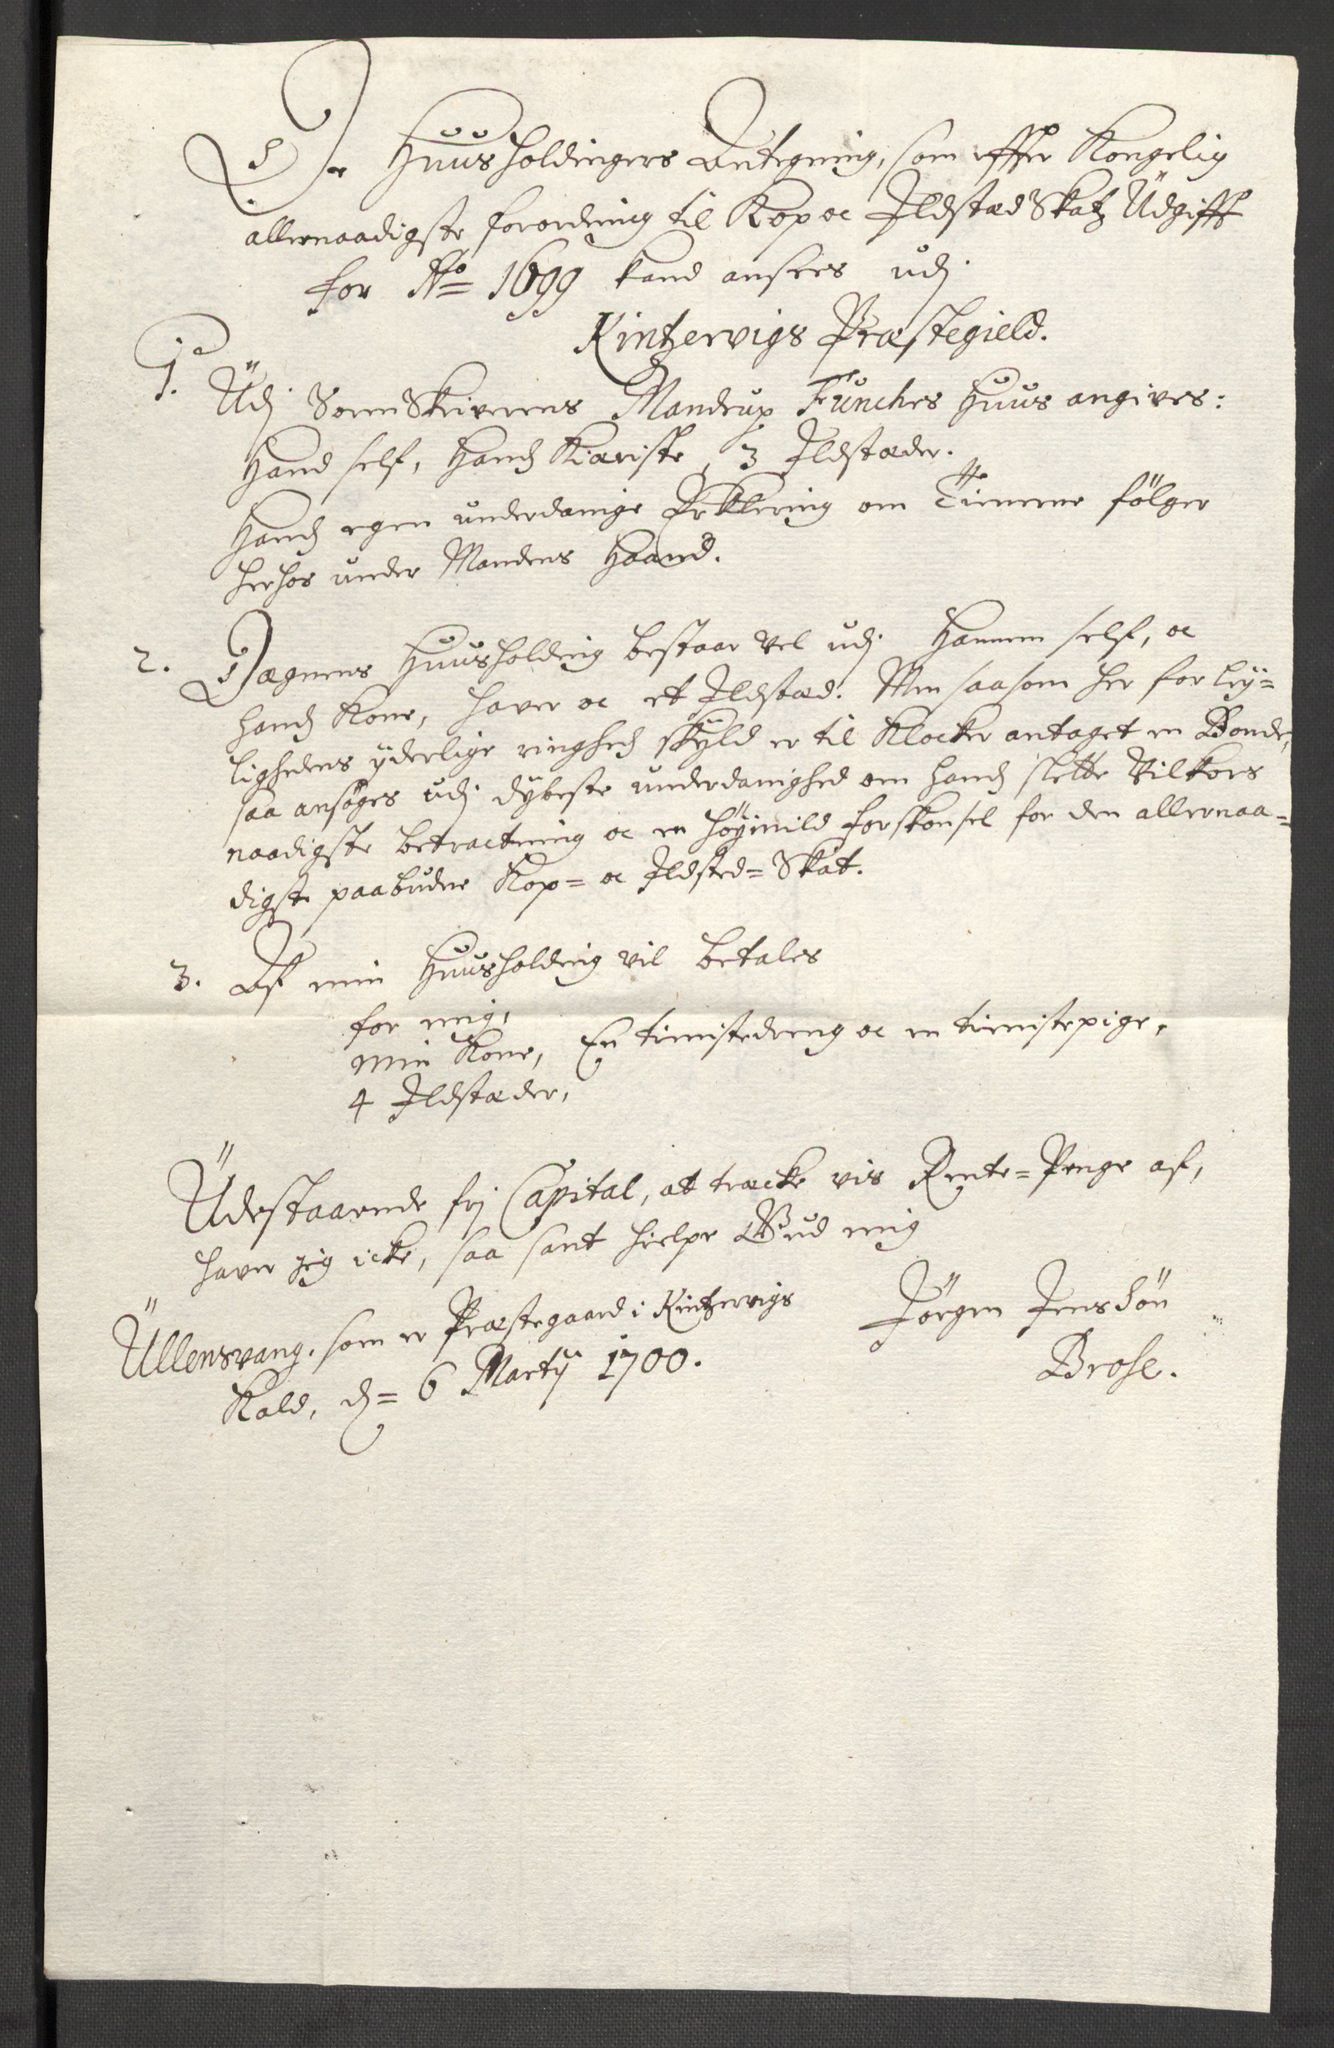 De Huusholdingers Antegning, som effter Kongelig
allernaadigste forordning til Kop oc Ildsted Skatz Üdgifft
for Ao 1699 kand ansees udj
Kintzervigs Præstegield.
1. Üdj SorenSkriverens Mandrup Fünches Huus angives:
Hand self, Hands Kieriste, 3 Ildstæder.
Hands egen underdanige Erklering om Tienerne fölger
herhos under Mandens Haand.
2. Degnens Huusholding bestaar vel udj Hannem self, oc
hands Kone, haver oc et Ildstæd. Men saasom her for Ley=
lighedens yderlige ringheds skyld er til Klocker antaget en Bonde,
saa ansöges udj dybeste underdanighed om hands slette Vilkors
naadigste betractning oc en höymild forskonsel for den allernaa=
digst paabudne Kop= oc Ildsted=Skat.
3. Af min Huusholding vil betales
for mig,
min Kone, En tienistedreng oc en tienistepige,
4 Ildstæder,
Üdestaaende frj Capital, at træcke vis Rente=Penge af,
haver jeg icke, saa sant hielpe Gud mig
Üllensvang, som er Præstegaard i Kintzervigs
Kald, d= 6 Martij 1700.
Jörgen Jensön
Brose.